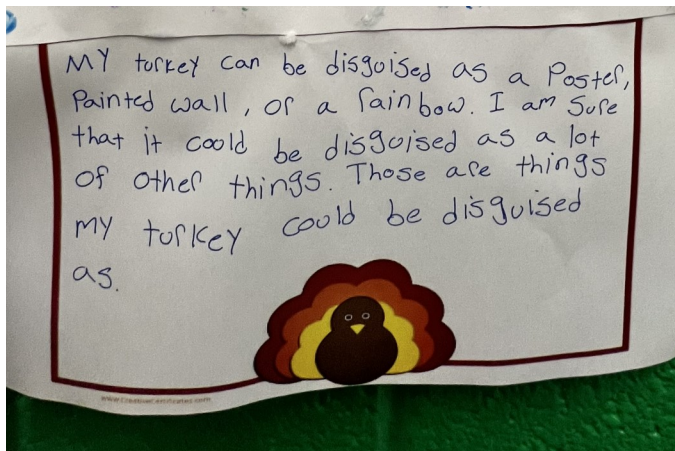 MY turkey can be disguised as a Poster,
Painted wall, or a rainbow. I am Sure
that it could be disguised as a lot
of other things. Those are things
my turkey could be disguised
as.
www.CreativeCertificates.com